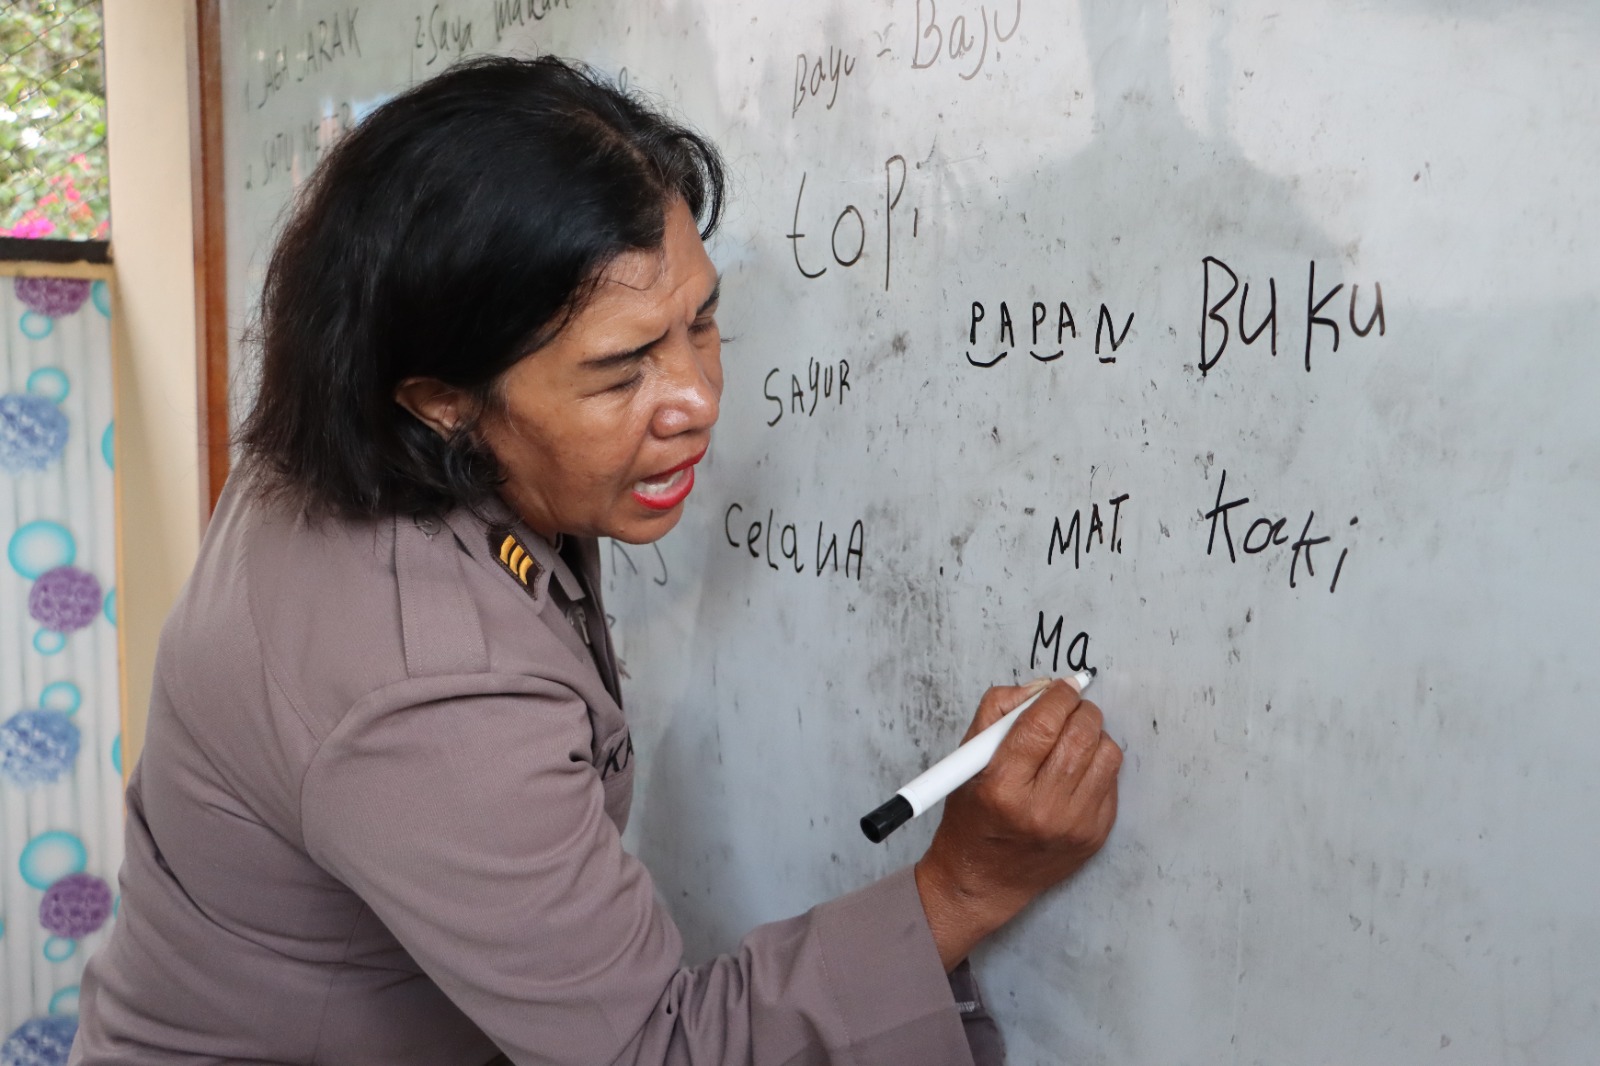 JAGA JARAK
2. Saya makan
2. SATU ME
Bayu = Baju
topi
PAPAN BUKU
SAYUR
CelanA MAT. Kaki
Ma
KA